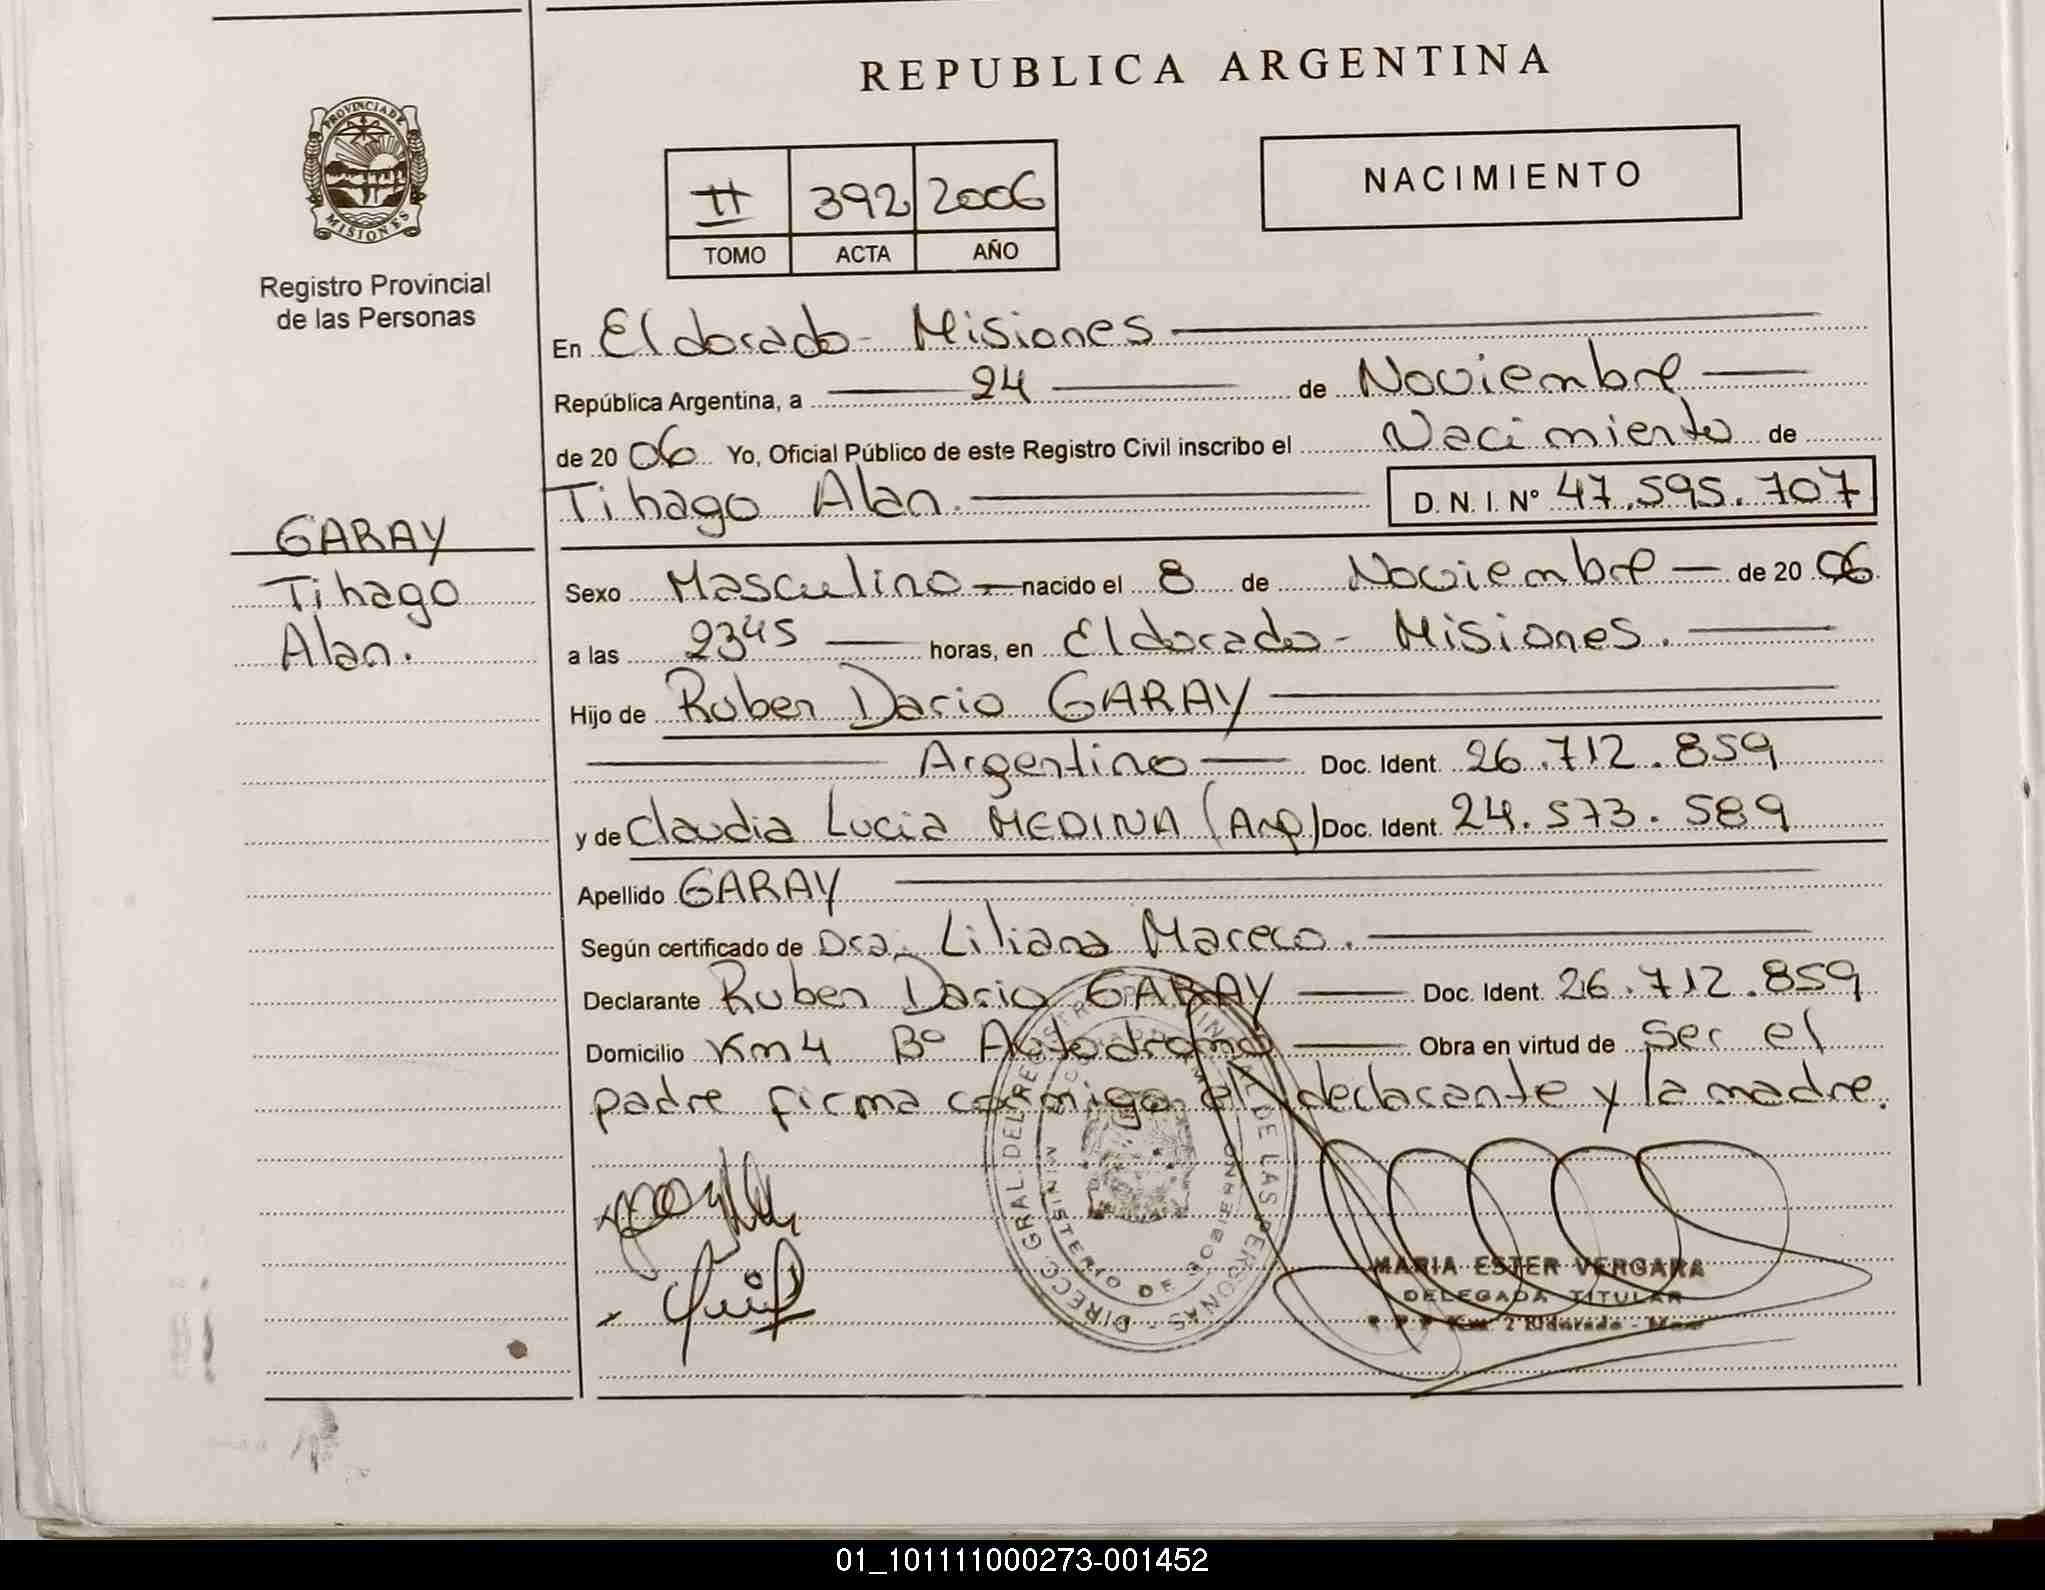 REPUBLICA ARGENTINA
PROVINCIA DE
MISIONES
Registro Provincial
de las Personas
II 392 2006
TOMO ACTA AÑO
NACIMIENTO
En Eldorado - Misiones
República Argentina, a 24 de Noviembre
de 2006 Yo, Oficial Público de este Registro Civil inscribo el Nacimiento de
Tihago Alan. D. N. I. Nº 47.595.707
GARAY
Tihago
Alan.
Sexo Masculino nacido el 8 de Noviembre de 2006
a las 2345 horas, en Eldorado - Misiones.
Hijo de Ruben Dario GARAY
Argentino Doc. Ident. 26.712.859
y de Claudia Lucia MEDINA (Arg) Doc. Ident. 24.573.589
Apellido GARAY
Según certificado de Dra. Liliana Mareco.
Declarante Ruben Dario GARAY Doc. Ident. 26.712.859
Domicilio Km 4 Bº Autodromo Obra en virtud de ser el
padre firma conmigo el declarante y la madre.
DIRECC. GRAL. DEL REGISTRO PROVINCIAL DE LAS PERSONAS
MINISTERIO DE GOBIERNO
MARIA ESTER VERGARA
DELEGADA TITULAR
Km. 2 Eldorado - Mnes
01_101111000273-001452